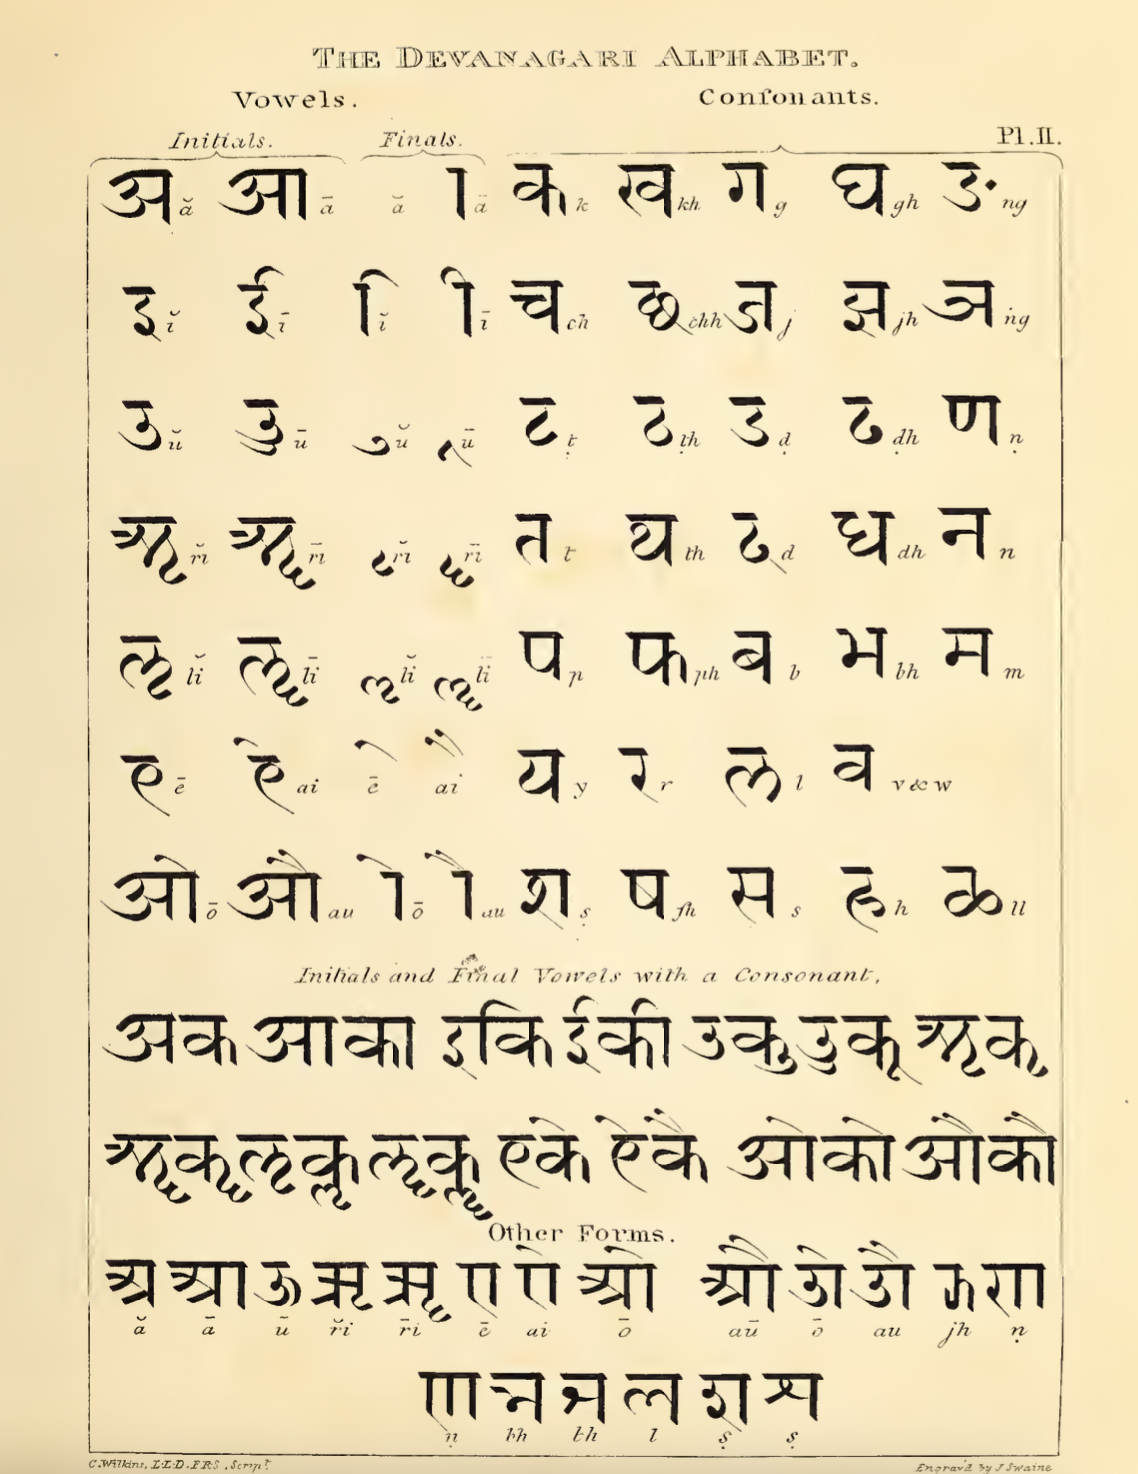 THE DEVANAGARI ALPHABET.
Vowels. Conſonants.
Initials. Finals. Pl.II.
अ ă आ ā ă ा ā क k ख kh ग g घ gh ङ ng
इ ĭ ई ī ि ĭ ी ī च ch छ chh ज j झ jh ञ ṅg
उ ŭ ऊ ū ु ŭ ू ū ट ṭ ठ ṭh ड ḍ ढ ḍh ण ṇ
ऋ rĭ ॠ rī ृ rĭ ॄ rī त t थ th द d ध dh न n
ऌ lĭ ॡ lī ॢ lĭ ॣ lī प p फ ph ब b भ bh म m
ए ē ऐ ai े ē ै ai य y र r ल l व v & w
ओ ō औ au ो ō ौ au श ṣ ष ſh स s ह h ळ ll
Initials and Final Vowels with a Consonant,
अक आका इकि ईकी उकु ऊकू ऋकृ
ॠकॄ ऌकॢ ॡकॣ एके ऐकै ओको औकौ
Other Forms.
अ आ ऊ ऋ ॠ ए ऐ ओ औ ओ औ झ ण
ă ā ū rĭ rī ē ai ō aū ō au jh ṇ
ण ल श श
ṇ bh th l ṣ ṣ
C.Wilkins, LL.D.F.R.S, Script. Engrav'd by J Swaine